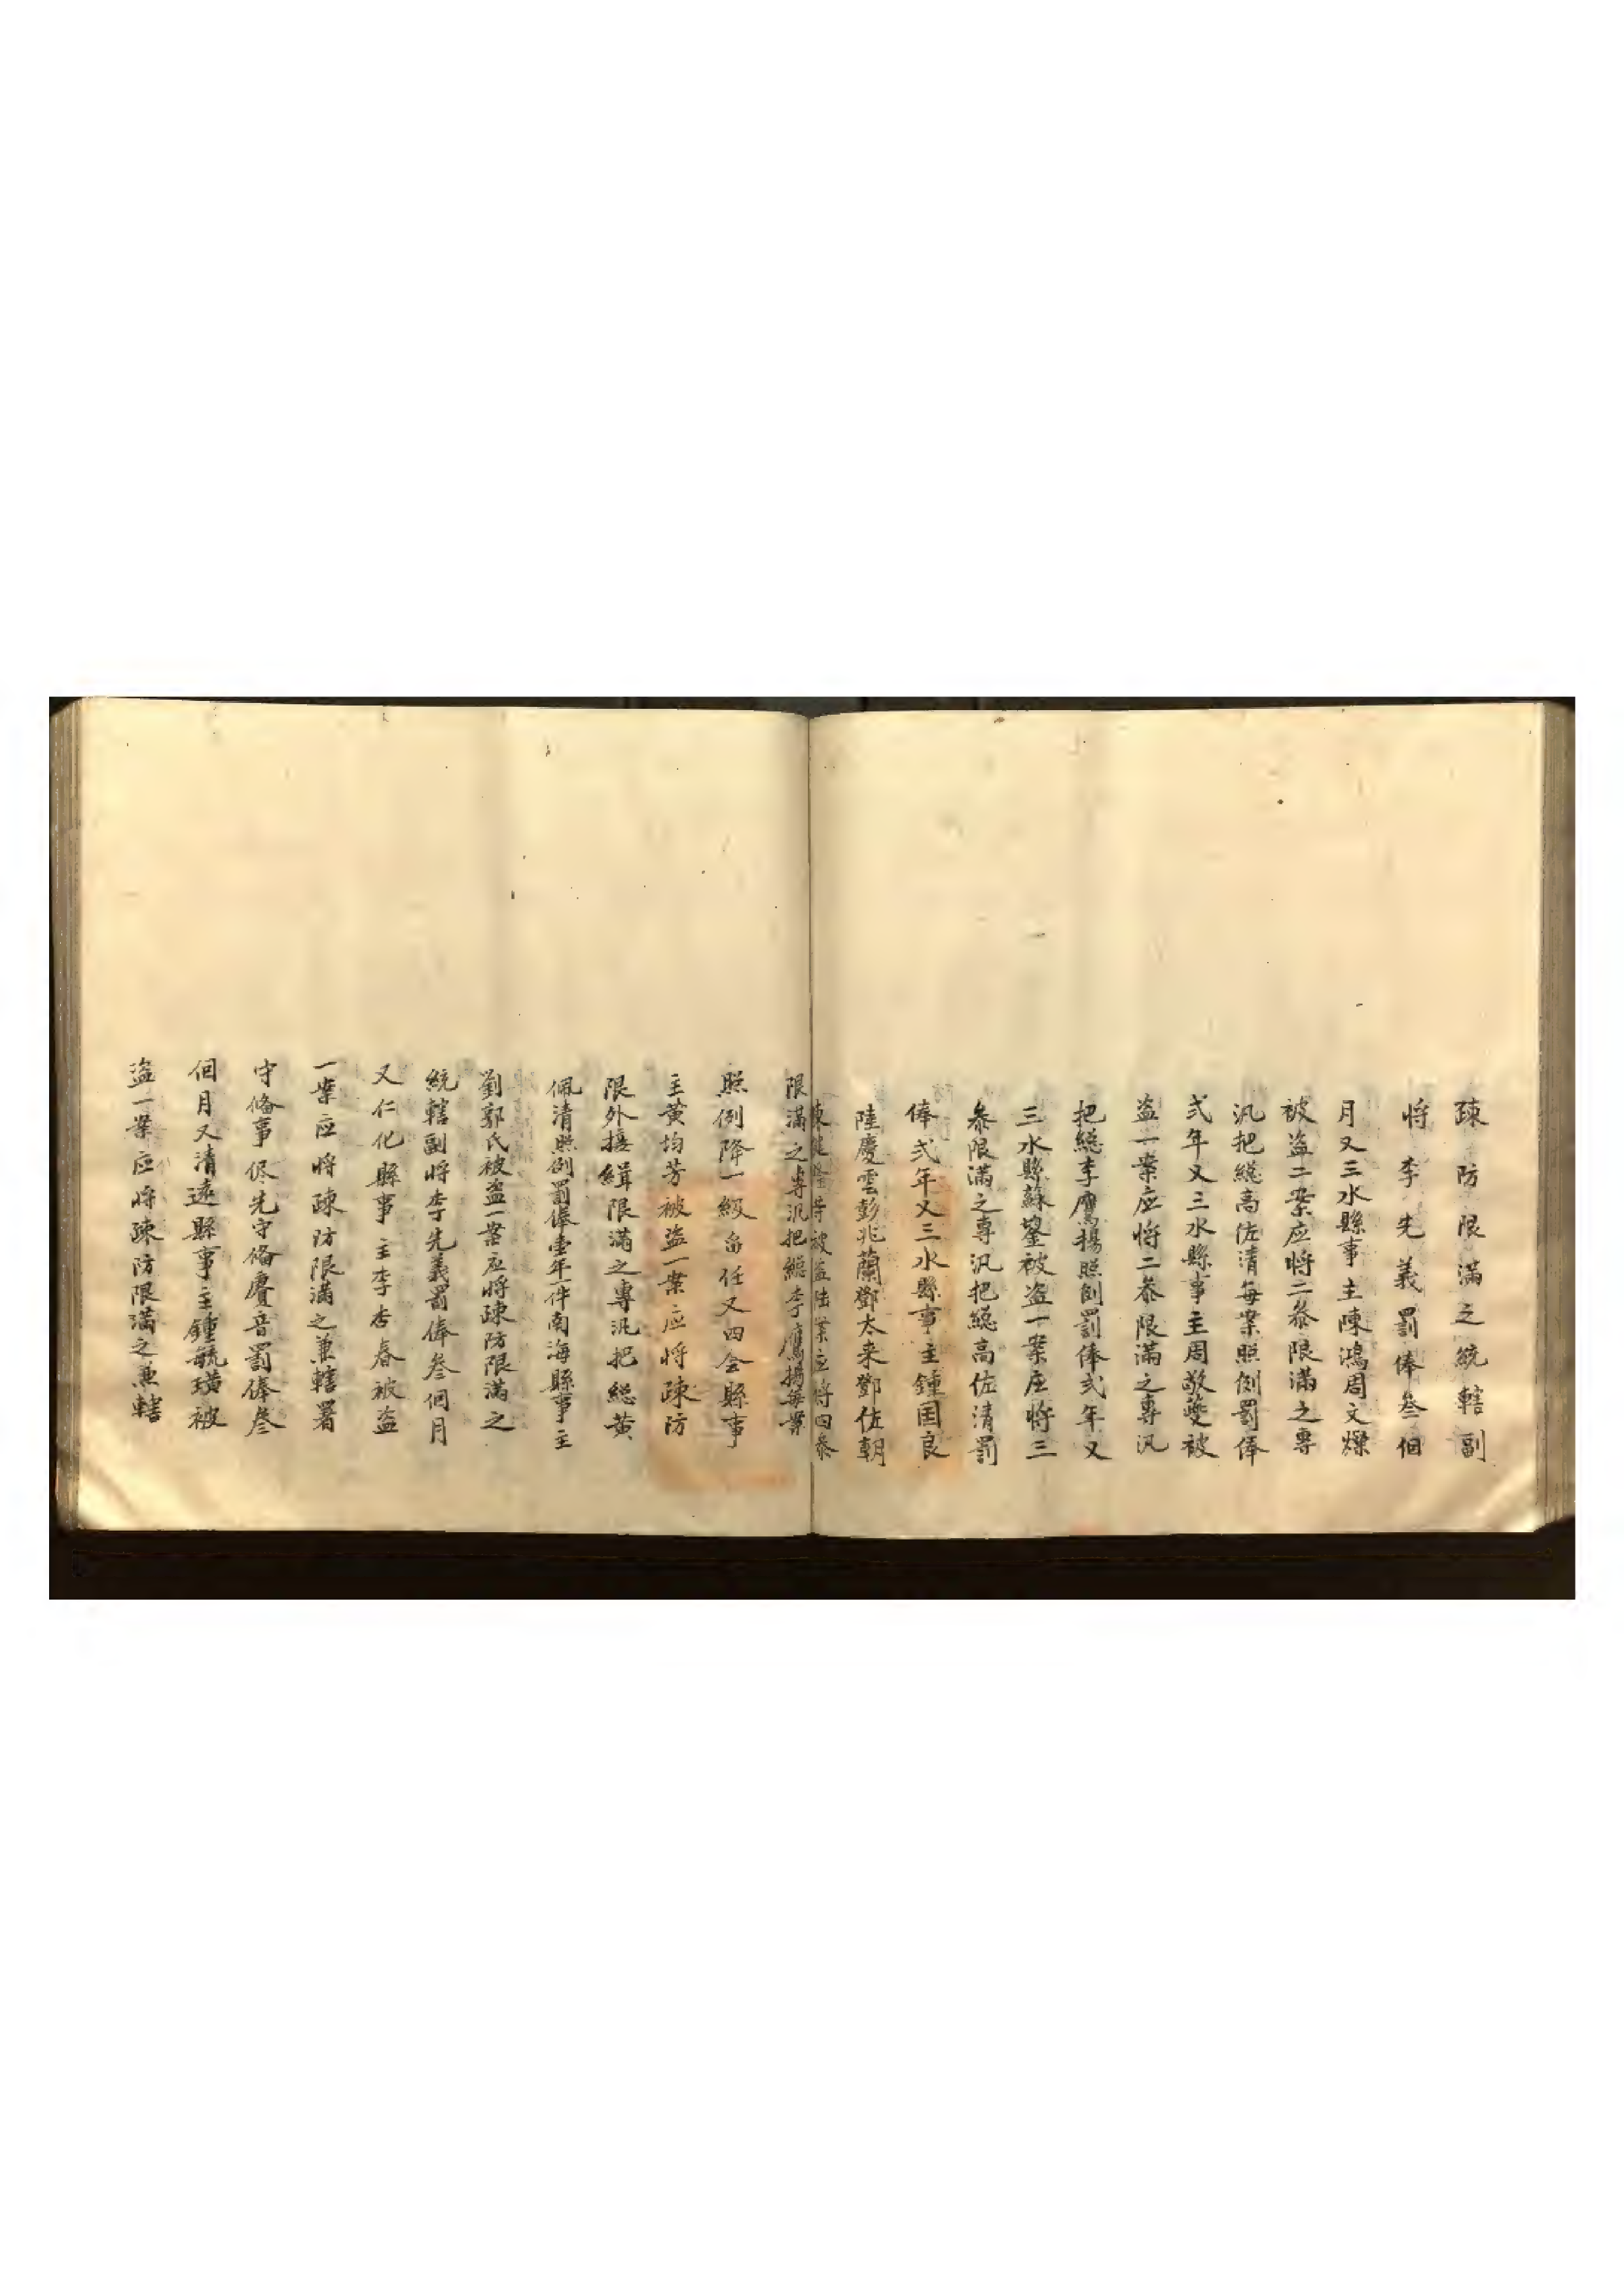 疎防限滿之統轄副
將李先義罰俸叁個
月又三水縣事主陳鴻周文燦
被盗二案应將二叅限滿之專
汛把総高佐清每案照例罰俸
弍年又三水縣事主周敬雙被
盗一案应將二叅限滿之專汛
把総李鷹揚照例罰俸弍年又
三水縣蘇鋆被盗一案应將三
叅限滿之專汛把総高佐清罰
俸弍年又三水縣事主鍾国良
陸慶雲彭兆蘭鄧太来鄧佐朝
等被盗陆案应將四叅
限滿之專汛把総李鷹揚每案
照例降一級畱任又四会縣事
主黄均芳被盗一案应將疎防
限外接緝限滿之專汛把総黄
佩清照例罰俸壹年一件南海縣事主
劉郭氏被盗一案应將疎防限滿之
統轄副將李先義罰俸叁個月
又仁化縣事主李杏春被盗
一案应將疎防限滿之兼轄署
守俻事侭先守俻賡音罰俸叁
個月又清遠縣事主鍾毓璜被
盗一案应將疎防限滿之兼轄